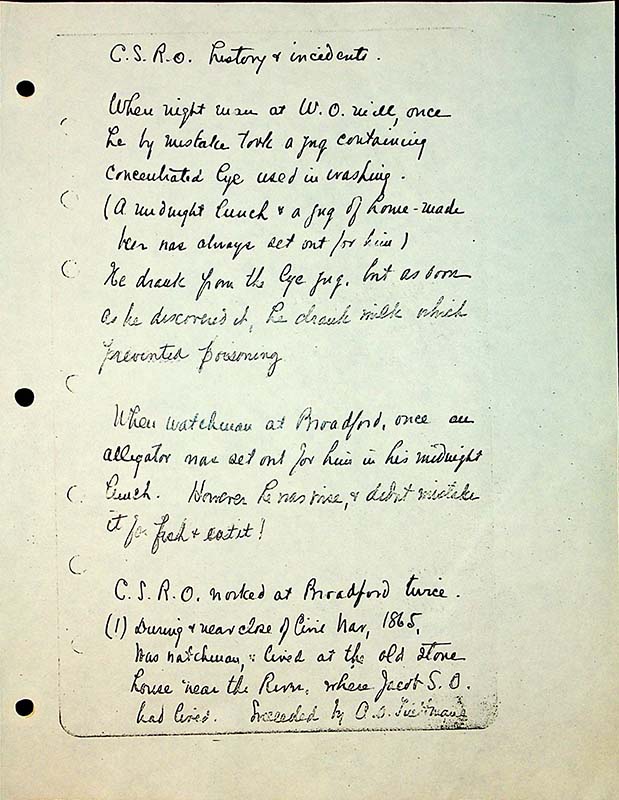 C.S.R.O. history & incidents.
When night man at W.O. mill, once
he by mistake took a jug containing
concentrated lye used in washing.
(A midnight lunch & a jug of home-made
beer was always set out for him)
He drank from the lye jug, but as soon
as he discovered it, he drank milk which
prevented poisoning
When watchman at Broadford, once an
alligator was set out for him in his midnight
lunch. However he was wise, & didn't mistake
it for fish & eat it!
C.S.R.O. worked at Broadford twice.
(1) During & near close of Civil War, 1865,
Was watchman, & lived at the old stone
house near the River, where Jacob S.O.
had lived. Succeeded by